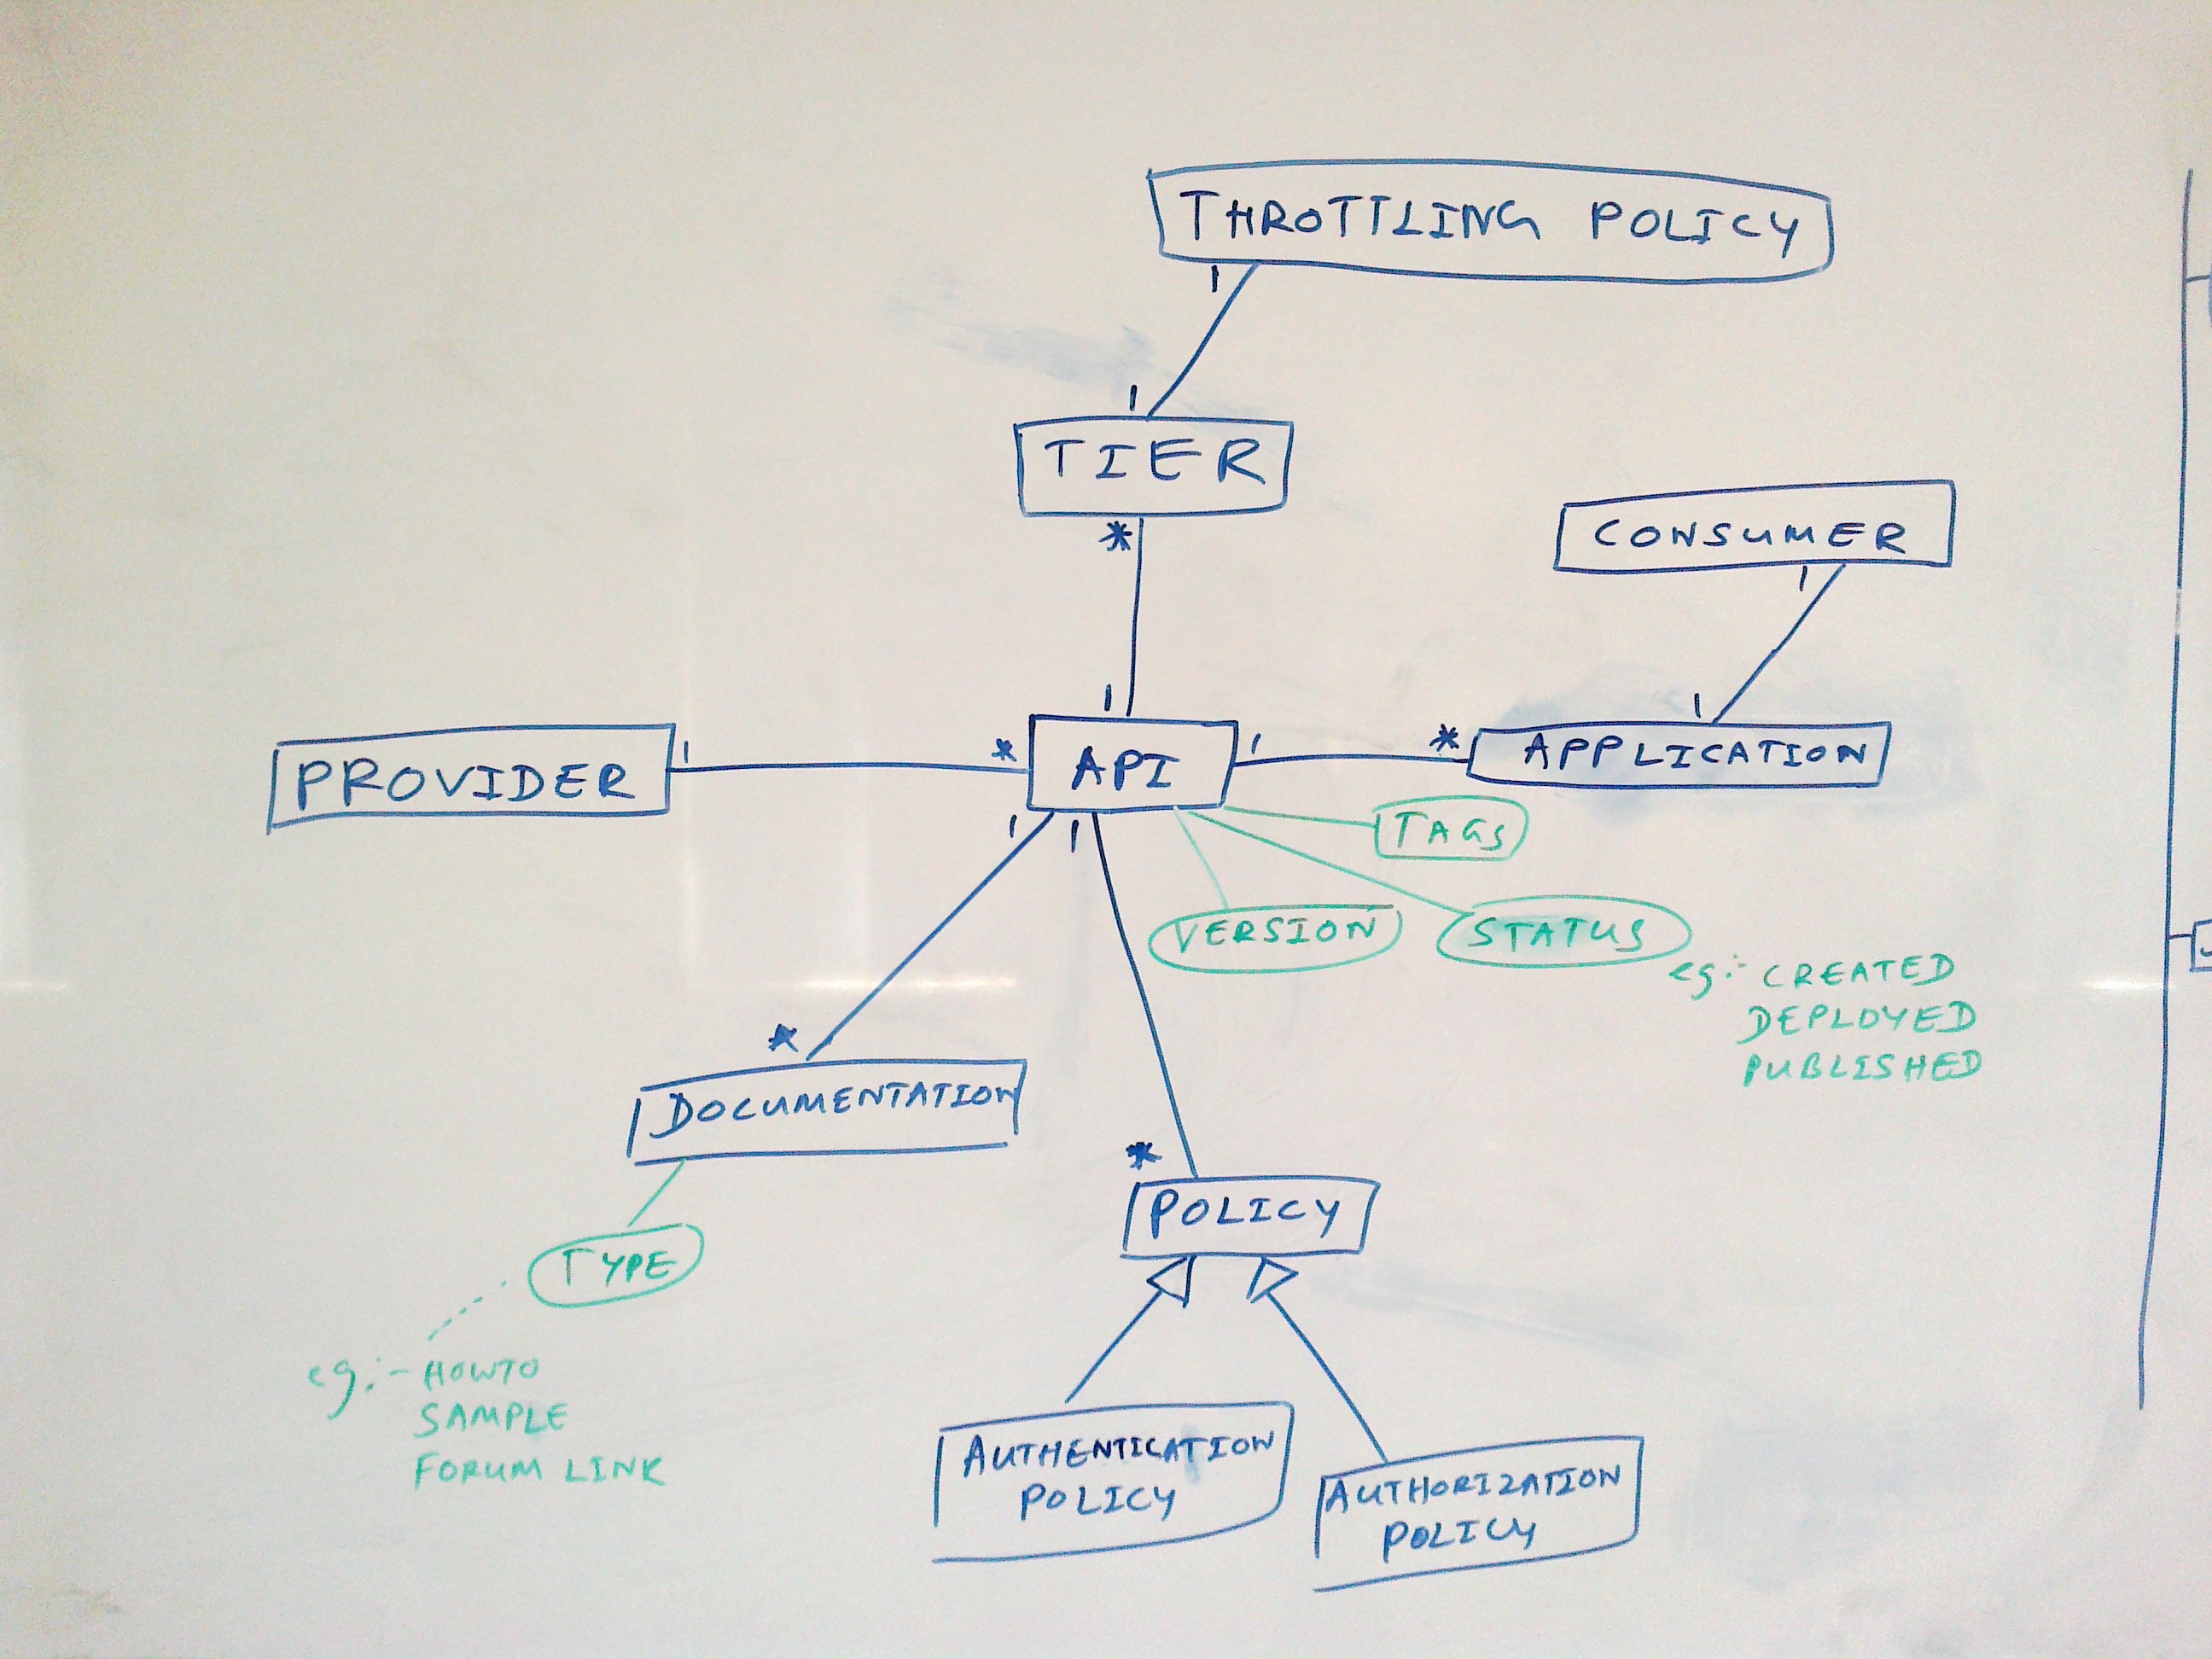 THROTTLING POLICY
1
1
TIER
*
CONSUMER
1
1
1
PROVIDER
1
*
API
1
*
APPLICATION
1
1
TAGS
VERSION
STATUS
eg:- CREATED
DEPLOYED
PUBLISHED
*
DOCUMENTATION
*
POLICY
TYPE
eg:- HOWTO
SAMPLE
FORUM LINK
AUTHENTICATION
POLICY
AUTHORIZATION
POLICY